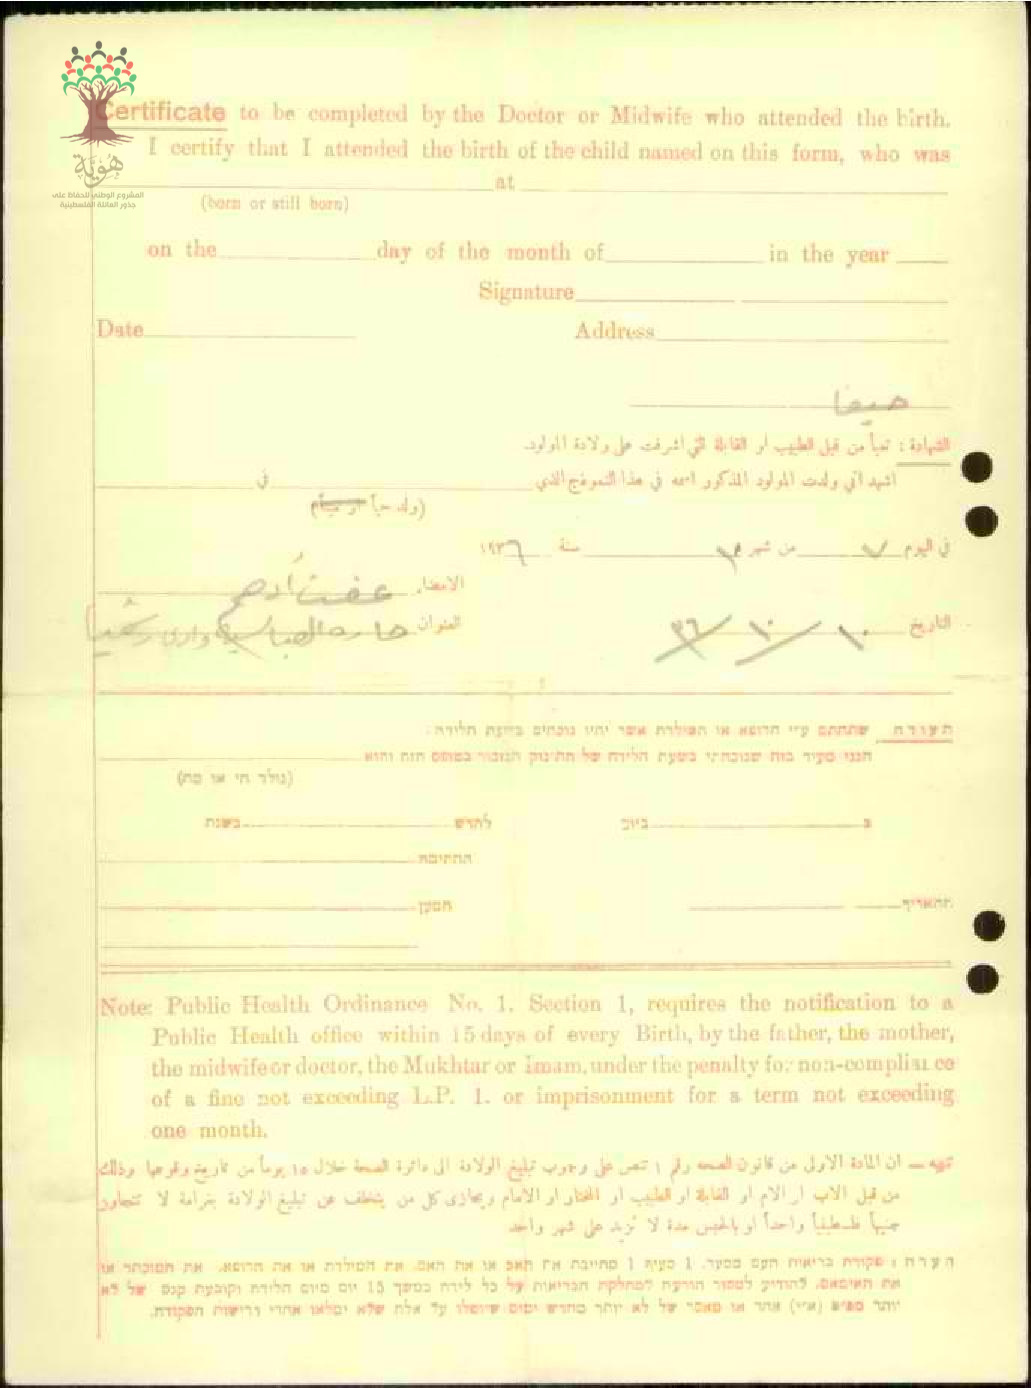 هُويّة
المشروع الوطني للحفاظ على
جذور العائلة الفلسطينية
Certificate to be completed by the Doctor or Midwife who attended the birth.
I certify that I attended the birth of the child named on this form, who was
at
(born or still born)
on the day of the month of in the year
Signature
Date Address
حيفا
الشهادة : تعبأ من قبل الطبيب او القابلة التي اشرفت على ولادة المولود.
اشهد اني ولدت المولود المذكور اسمه في هذا النموذج الذي في
(ولد حياً او ميتاً)
في اليوم ٧ من شهر سنة ١٩٣٦
الامضاء عفت أدهم
التاريخ ١٠/١٠/٣٦ العنوان حارة وادي
תעודה שתחתם ע״י הרופא או המילדת אשר יהיו נוכחים בשעת הלידה:
הנני מעיד בזה שנוכחתי בשעת הלידה של התינוק הנזכר בטופס הזה והוא
(נולד חי או מת)
ב ביום לחדש בשנת
החתימה
התאריך המען
Note: Public Health Ordinance No. 1. Section 1, requires the notification to a
Public Health office within 15 days of every Birth, by the father, the mother,
the midwife or doctor, the Mukhtar or Imam, under the penalty for non-compliance
of a fine not exceeding L.P. 1. or imprisonment for a term not exceeding
one month.
تنبيه — ان المادة الاولى من قانون الصحة رقم ١ تنص على وجوب تبليغ الولادة الى دائرة الصحة خلال ١٥ يوماً من تاريخ وقوعها وذلك
من قبل الاب او الام او القابلة او الطبيب او المختار او الامام ويجازى كل من يتخلف عن تبليغ الولادة بغرامة لا تتجاوز
جنيهاً فلسطينياً واحداً او بالحبس مدة لا تزيد على شهر واحد
הערה : פקודת בריאות העם מספר. 1 סעיף 1 מחייבת את האב או את האם. את המילדת או את הרופא. את המוכתר או
את האימאם. להודיע למשרד הבריאות על כל לידה במשך 15 יום מיום הלידה וקובעת קנס של לא
יותר (א״י) אחד או מאסר של לא יותר מחדש ימים על אלה שלא ימלאו אחרי דרישות הפקודה.